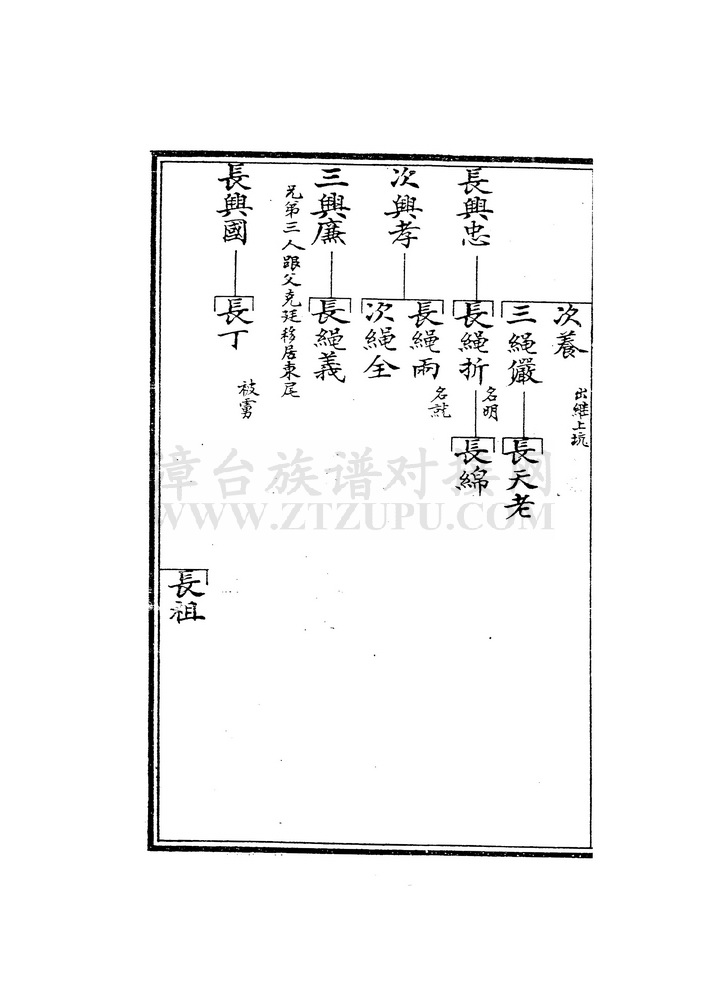 次養
出継上坑
三繩儼
長天老
長興忠
長繩折
名明
長綿
次興孝
長繩兩
名就
次繩全
三興廉
長繩義
兄弟三人跟父克廷移居東尾
長興國
長丁
被虜
長祖
漳台族谱对接网
WWW.ZTZUPU.COM